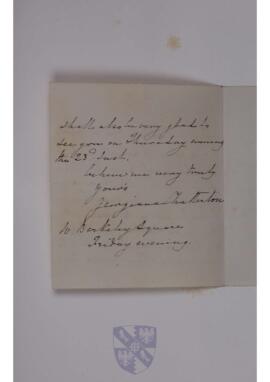 shall also be very glad to
see you on Thursday evening
the 23d Inst.
believe me very truly
yours
Georgiana Chatterton
Berkeley Square
Friday evening.